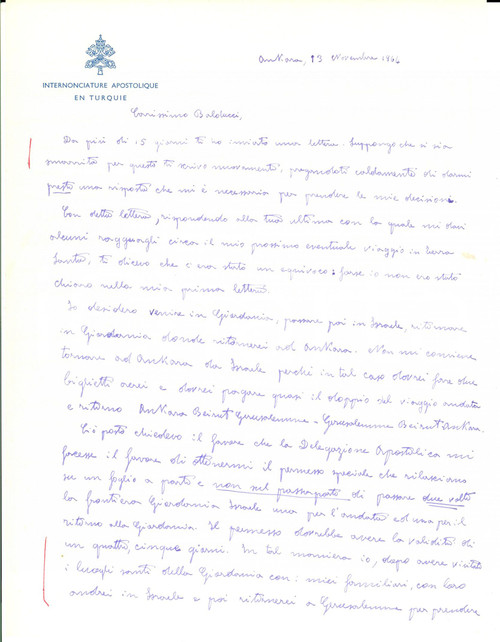 Ankara, 13 Novembre 196
INTERNONCIATURE APOSTOLIQUE
EN TURQUIE
Carissimo Balducci,
Da più di 15 giorni ti ho inviato una lettera. Suppongo che si sia
smarrita per questo ti scrivo nuovamente, pregandoti caldamente di darmi
presto una risposta che mi è necessaria per prendere le mie decisioni.
Con detta lettera, rispondendo alla tua ultima con la quale mi davi
alcuni ragguagli circa il mio prossimo eventuale viaggio in Terra
Santa, ti dicevo che c'era stato un equivoco: forse io non ero stato
chiaro nella mia prima lettera.
Io desidero venire in Giordania, passare poi in Israele, ritornare
in Giordania donde ritornerei ad Ankara. Non mi conviene
tornare ad Ankara da Israele perché in tal caso dovrei fare due
biglietti aerei e dovrei pagare quasi il doppio del viaggio andata
e ritorno Ankara Beirut Gerusalemme - Gerusalemme Beirut Ankara.
Ciò posto chiedevo il favore che la Delegazione Apostolica mi
facesse il favore di ottenermi il permesso speciale che rilasciano
su un foglio a parte e non sul passaporto di passare due volte
la frontiera Giordania Israele una per l'andata ed una per il
ritorno alla Giordania. Il permesso dovrebbe avere la validità di
un quattro, cinque giorni. In tal maniera io, dopo aver visitato
i luoghi santi della Giordania con i miei familiari, con loro
andrei in Israele e poi ritornerei a Gerusalemme per prendere